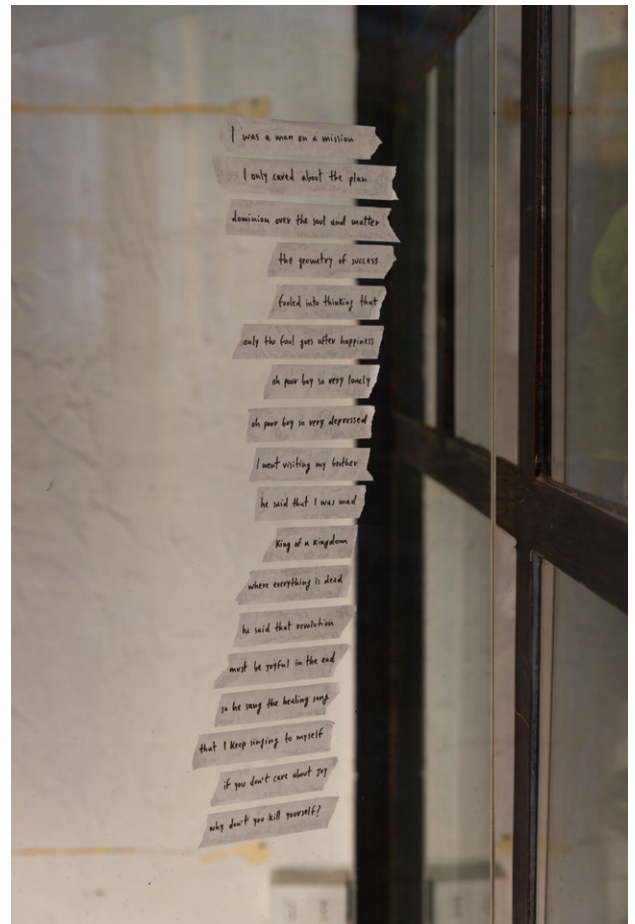 I was a man on a mission
I only cared about the plan
dominion over the soul and matter
the geometry of success
fooled into thinking that
only the fool goes after happiness
oh poor boy so very lonely
oh poor boy so very depressed
I went visiting my brother
he said that I was mad
King of a kingdom
where everything is dead
he said that revolution
must be joyful in the end
so he sang the healing song
that I keep singing to myself
if you don't care about joy
why don't you kill yourself?